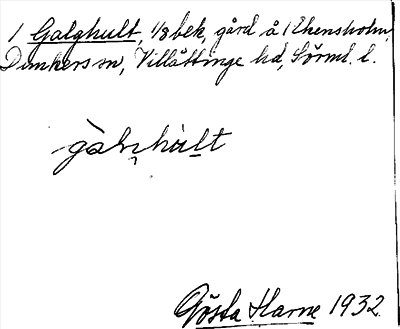 1 Galghult, 1/8 bek, gård å 1 Ehensholm,
Dunkers sn, Villåttinge hd, Sörml. l.
gàlɳhùlt
Gösta Harne 1932